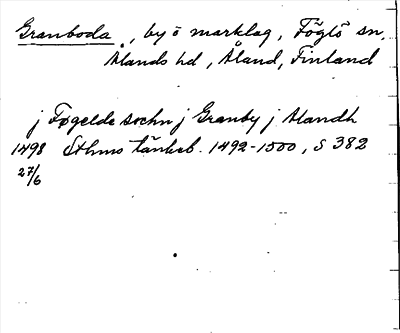 Granboda, by o marklag, Föglö sn,
Ålands hd, Åland, Finland
j Føgelde sochn j Granby j Alandh
1498 Sthms tänkeb. 1492-1500, s 382
27/6